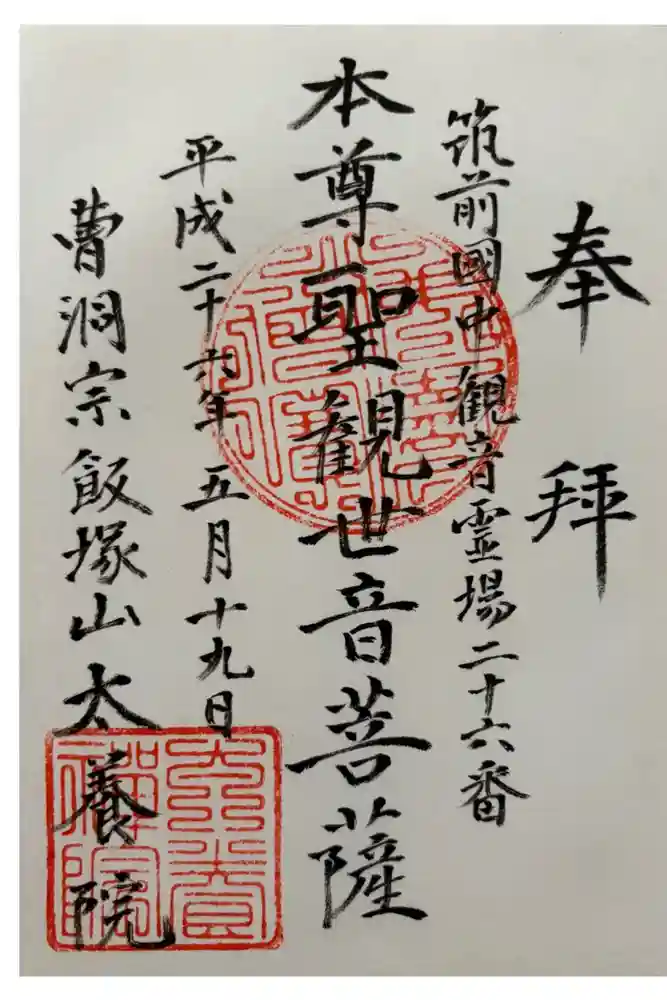 奉拝
筑前國中観音霊場二十六番
本尊聖観世音菩薩
平成二十六年五月十九日
曹洞宗飯塚山太養院